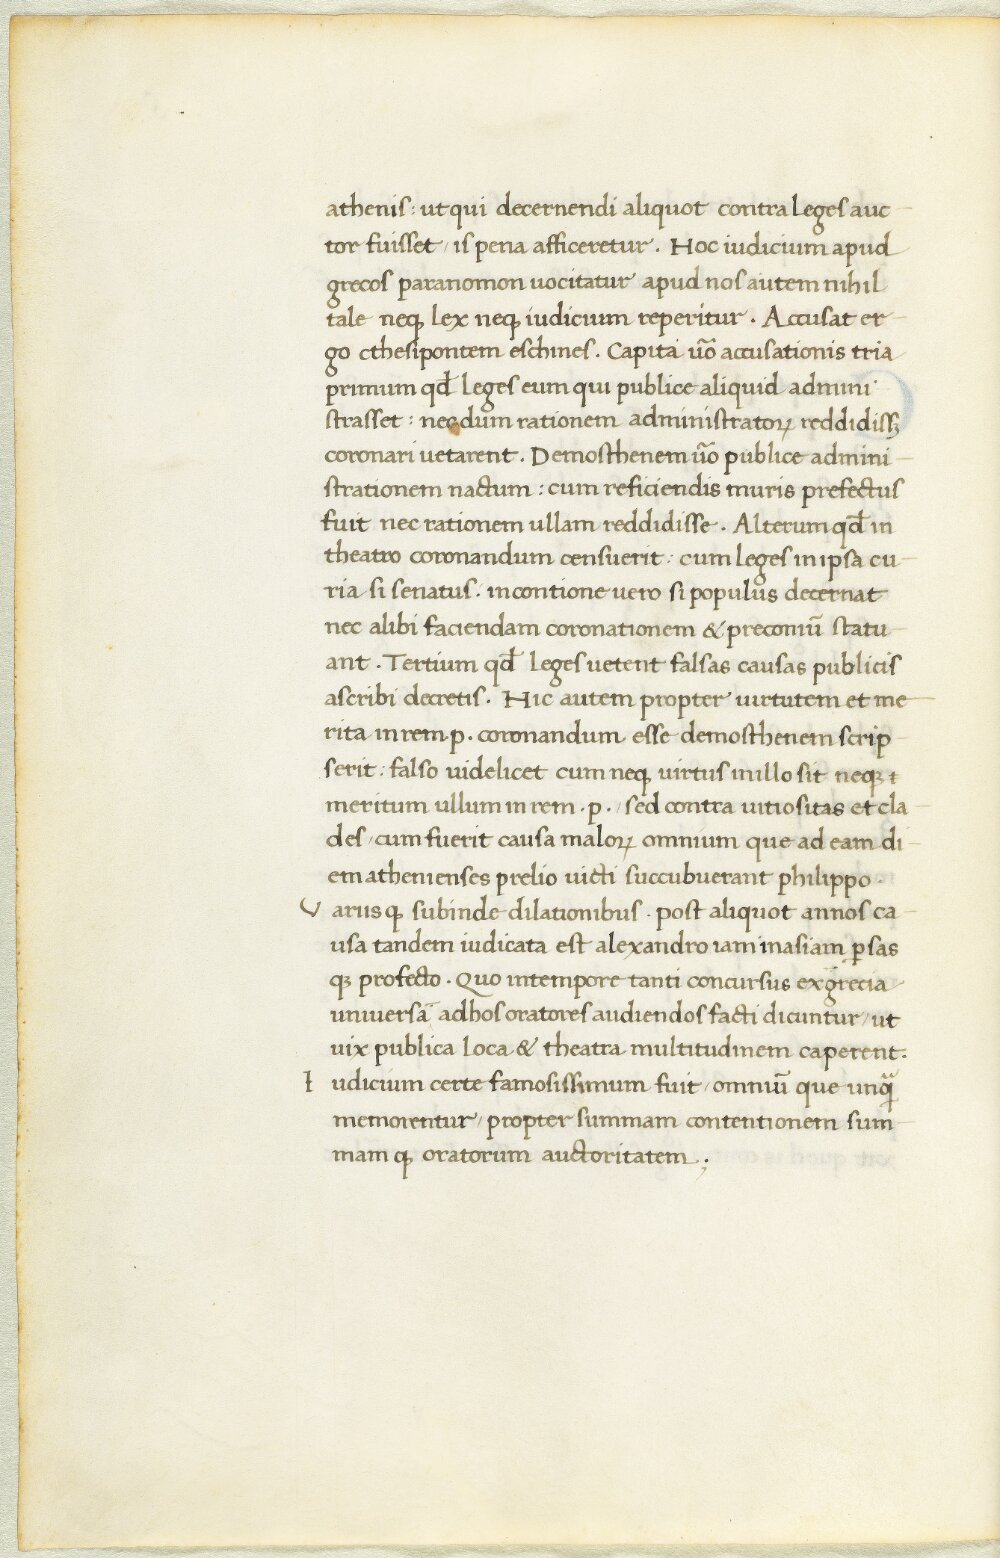 athenis: ut qui decernendi aliquot contra leges auc-
tor fuisset / is pena afficeretur. Hoc iudicium apud
grecos paranomon uocitatur apud nos autem nihil
tale neqꝫ lex neqꝫ iudicium reperitur. Accusat er-
go cthesipontem eschines. Capita uo̅ accusationis tria
primum qđ leges eum qui publice aliquid admini-
strasset: necdum rationem administratoꝝ reddidissꝫ
coronari uetarent. Demosthenem uo̅ publice admini-
strationem nactum: cum reficiendis muris prefectus
fuit nec rationem ullam reddidisse. Alterum qđ in
theatro coronandum censuerit: cum leges in ipsa cu-
ria si senatus. in contione uero si populus decernat
nec alibi faciendam coronationem & preconiū statu-
ant. Tertium qđ leges uetent falsas causas publicis
ascribi decretis. Hic autem propter uirtutem et me-
rita in rem .p. coronandum esse demosthenem scrip-
serit: falso uidelicet cum neqꝫ uirtus in illo sit neqꝫ
meritum ullum in rem .p. / sed contra uitiositas et cla-
des / cum fuerit causa maloꝝ omnium que ad eam di-
em athenienses prelio uicti succubuerant philippo.
Variisqꝫ subinde dilationibus. post aliquot annos ca-
usa tandem iudicata est alexandro iam in asiam ꝑsas
qꝫ profecto. Quo in tempore tanti concursus ex grecia
uniuersā ad hos oratores audiendos facti dicuntur / ut
uix publica loca & theatra multitudinem caperent.
Iudicium certe famosissimum fuit / omniū que unqᷓ
memorentur / propter summam contentionem sum-
mamqꝫ oratorum auctoritatem;